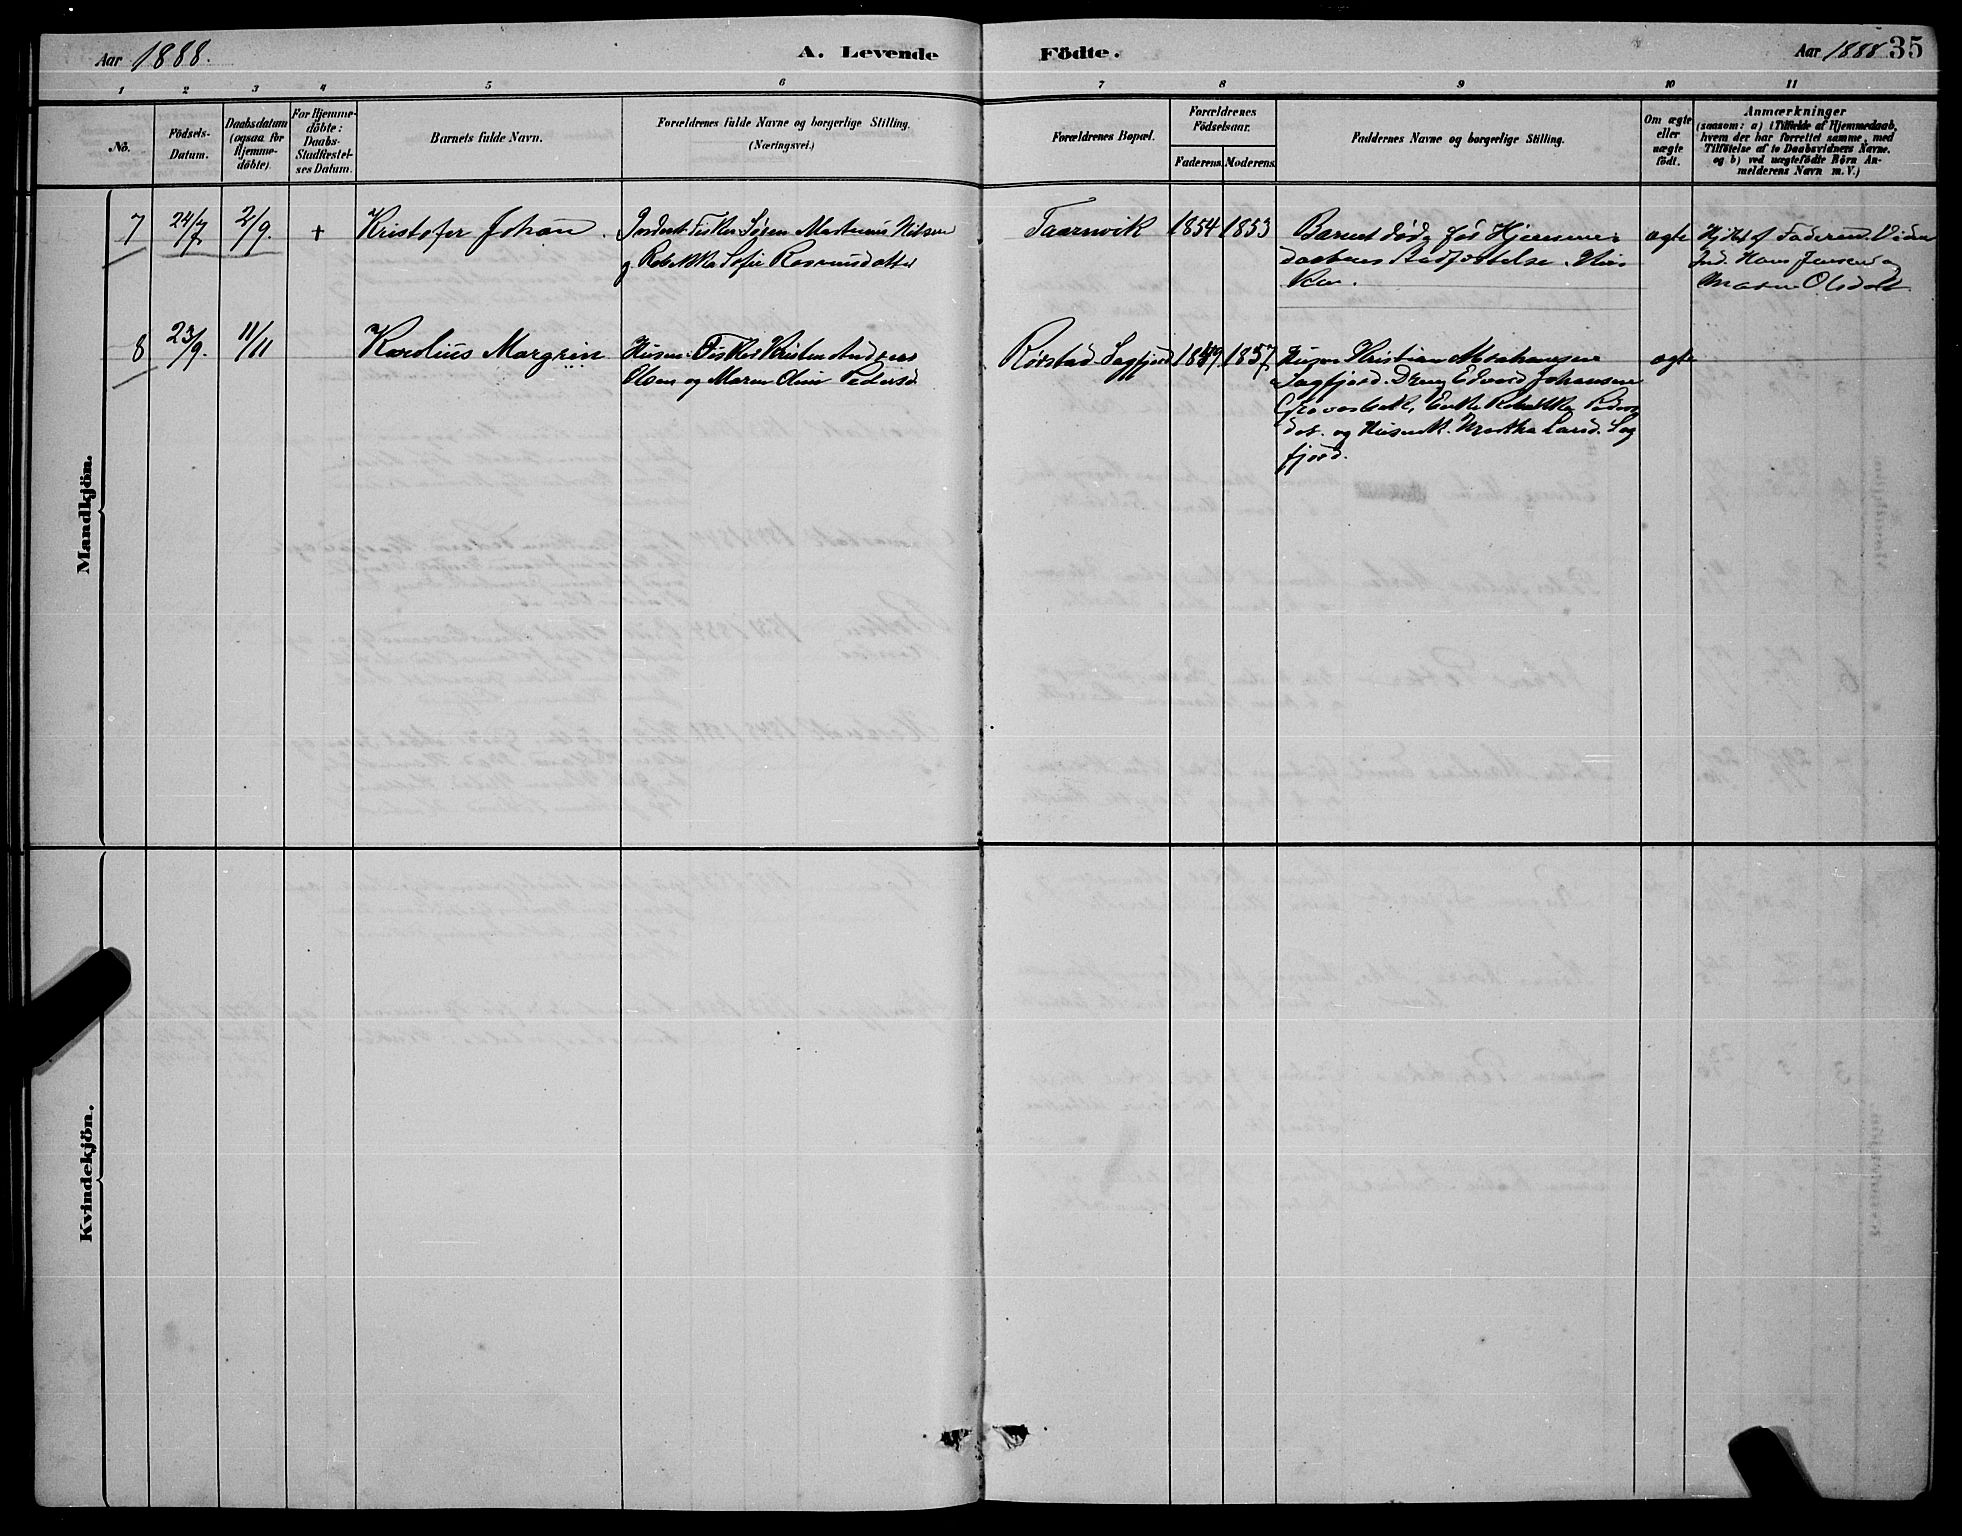 Aar 1888.
A. Levende Födte.
Aar 1888 35
1 2 3 4 5 6 7 8 9 10 11
No.
Födsels-
Datum.
Daabsdatum
(ogsaa for
Hjemme-
döbte).
For Hjemme-
döbte:
Daabs-
Stadfæstel-
ses Datum.
Barnets fulde Navn.
Forældrenes fulde Navne og borgerlige Stilling.
(Næringsvei.)
Forældrenes Bopæl.
Forældrenes
Födselsaar.
Faderens. Moderens.
Faddernes Navne og borgerlige Stilling.
Om ægte
eller
uægte
födt.
Anmærkninger
(saasom: a) i Tilfælde af Hjemmedaab,
hvem der har forrettet samme, med
Tilföielse af to Daabsvidners Navne,
og b) ved uægtefödte Börn An-
melderens Navn m. V.)
Mandkjön.
7
24/7
2/9.
+
Kristofer Johan.
Fisker Søren Martinus Nilsen
og Rebekka Sofie Rasmusdatter
Taarnvik
1854 1853
Barnet døde før Hjemme-
daabens Stadfæstelse i Kir-
ken.
ægte
Hjdbt af Faderen. Vidn
Ind. Hans Jensen og
Maren Olsdatt.
8
23/9.
11/11
Karolius Margrin
Husm. Fisker Kristen Andreas
Olsen og Maren Pedersd
Rörstad Sagfjord
1849 1857
Husm Kristian
Sagfjord. Dreng Edvard Johansen
Enke Rebekka Peders
dat. og Husmk. Martha Larsd. Sag
fjord.
ægte
Kvindekjön.